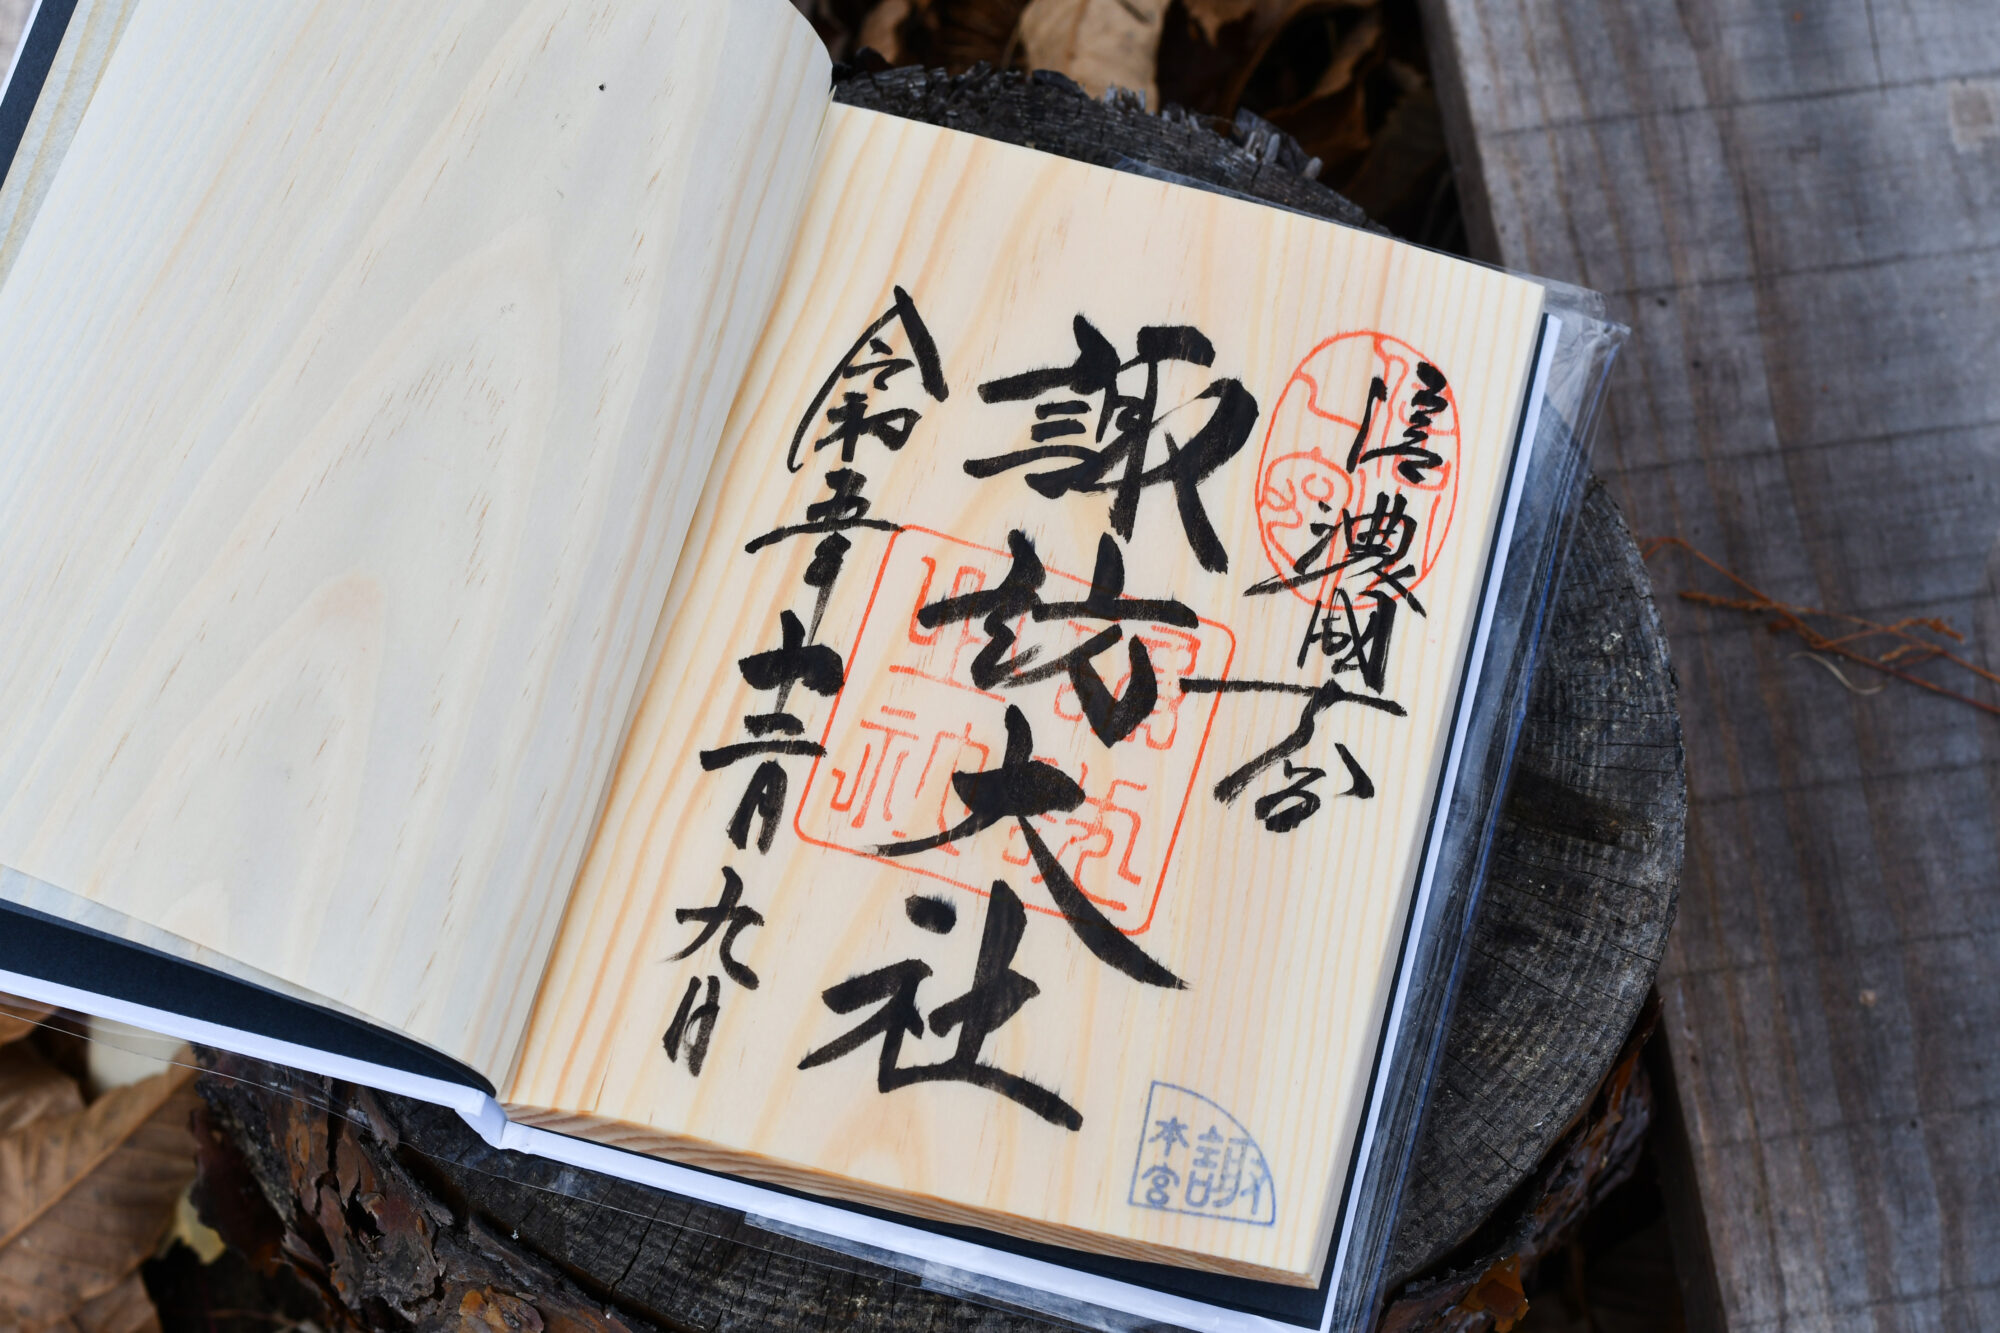 信濃國一之宮
諏訪大社
令和五年十二月九日
諏訪大社
諏
本宮